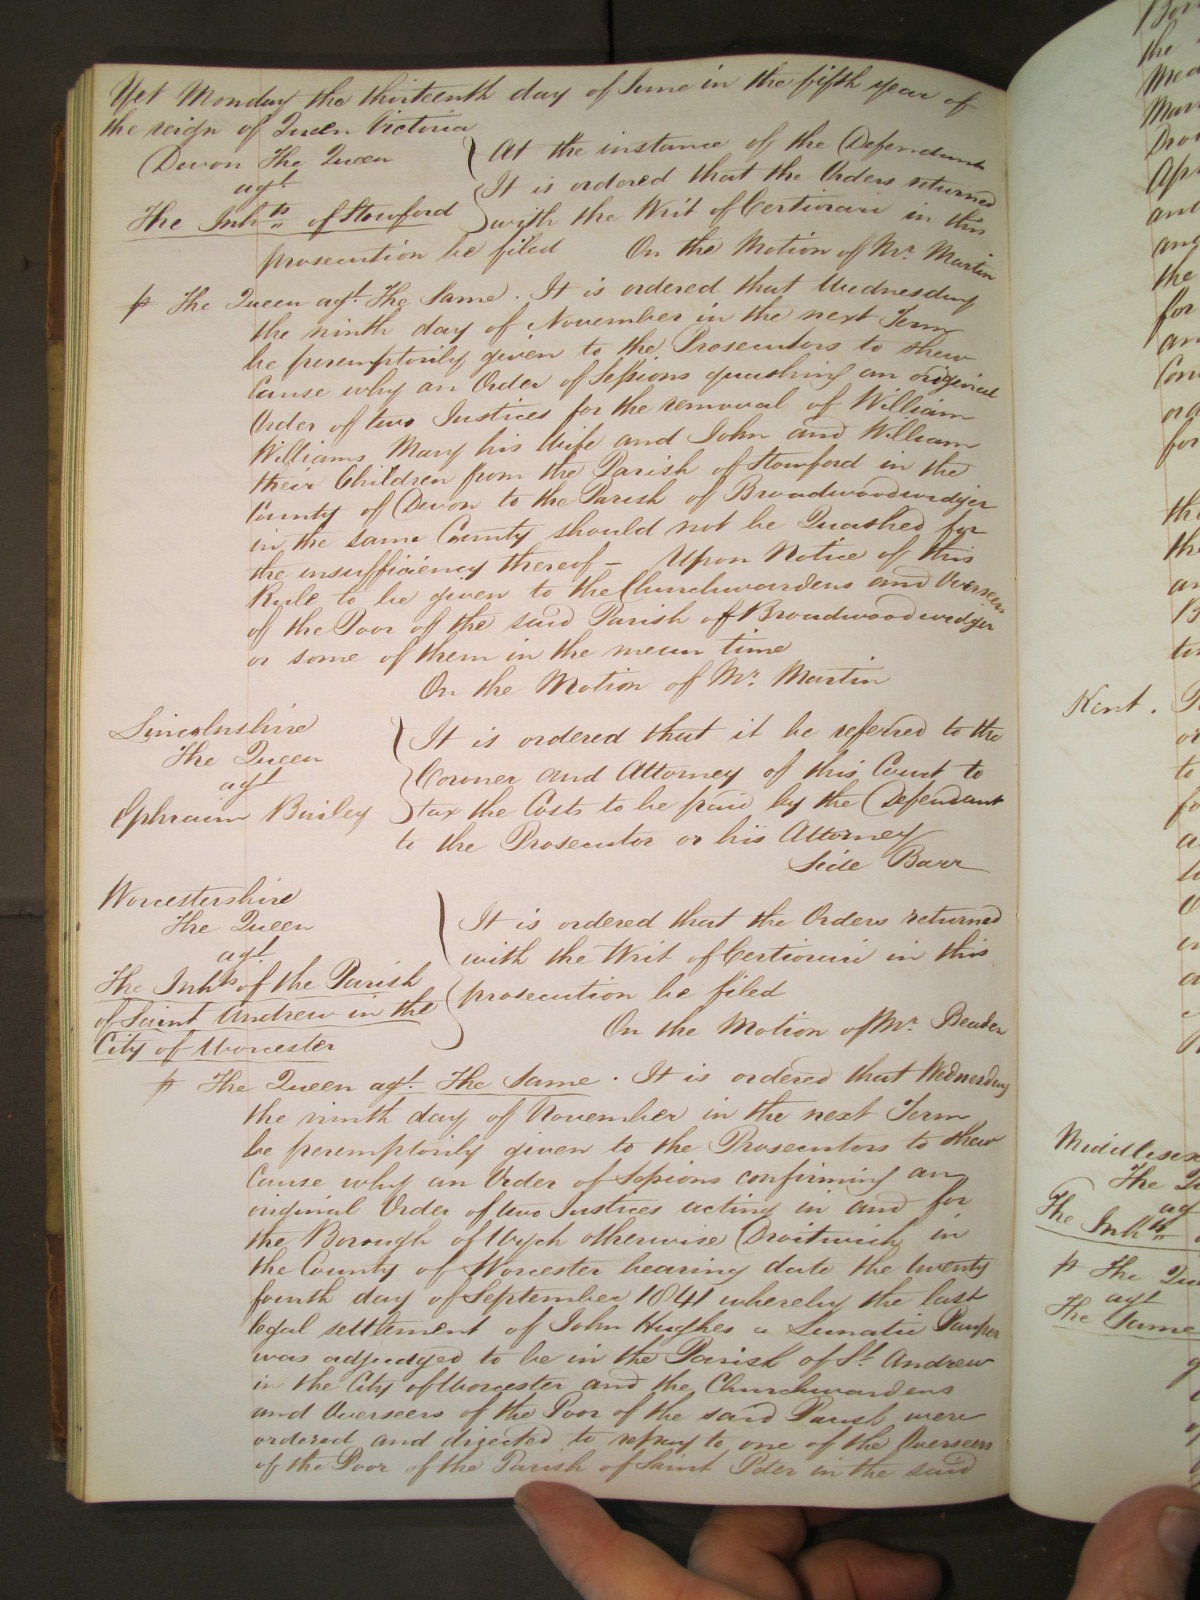 Yet Monday the thirteenth day of June in the fifth year of
the reign of Queen Victoria
Devon The Queen
agt
The Inhts of Stowford
At the instance of the Defendants
It is ordered that the Orders returned
with the Writ of Certiorari in this
prosecution be filed On the Motion of Mr. Martin
p The Queen agt The Same. It is ordered that Wednesday
the ninth day of November in the next Term
be peremptorily given to the Prosecutors to shew
Cause why an Order of Sessions quashing an original
Order of two Justices for the removal of William
Williams Mary his Wife and John and William
their Children from the Parish of Stowford in the
County of Devon to the Parish of Broadwoodwidger
in the same County should not be Quashed for
the insufficiency thereof - Upon Notice of this
Rule to be given to the Churchwardens and Overseers
of the Poor of the said Parish of Broadwoodwidger
or some of them in the mean time
On the Motion of Mr. Martin
Lincolnshire
The Queen
agt
Ephraim Bailey
It is ordered that it be referred to the
Coroner and Attorney of this Court to
tax the Costs to be paid by the Defendant
to the Prosecutor or his Attorney
Side Barr
Worcestershire
The Queen
agt
The Inhts of the Parish
of Saint Andrew in the
City of Worcester
It is ordered that the Orders returned
with the Writ of Certiorari in this
prosecution be filed
On the Motion of Mr.
p The Queen agt. The Same. It is ordered that Wednesday
the ninth day of November in the next Term
be peremptorily given to the Prosecutors to shew
Cause why an Order of Sessions confirming an
original Order of two Justices acting in and for
the Borough of Wych otherwise Droitwich in
the County of Worcester bearing date the twenty
fourth day of September 1841 whereby the last
legal settlement of John Hughes a Lunatic Pauper
was adjudged to be in the Parish of St. Andrew
in the City of Worcester and the Churchwardens
and Overseers of the Poor of the said Parish were
ordered and directed to repay to one of the Overseers
of the Poor of the Parish of Saint Peter in the said
the
and
the
for
for
Kent.
to
Middlesex
The
ag
The Inhts
p The
agt
The Same